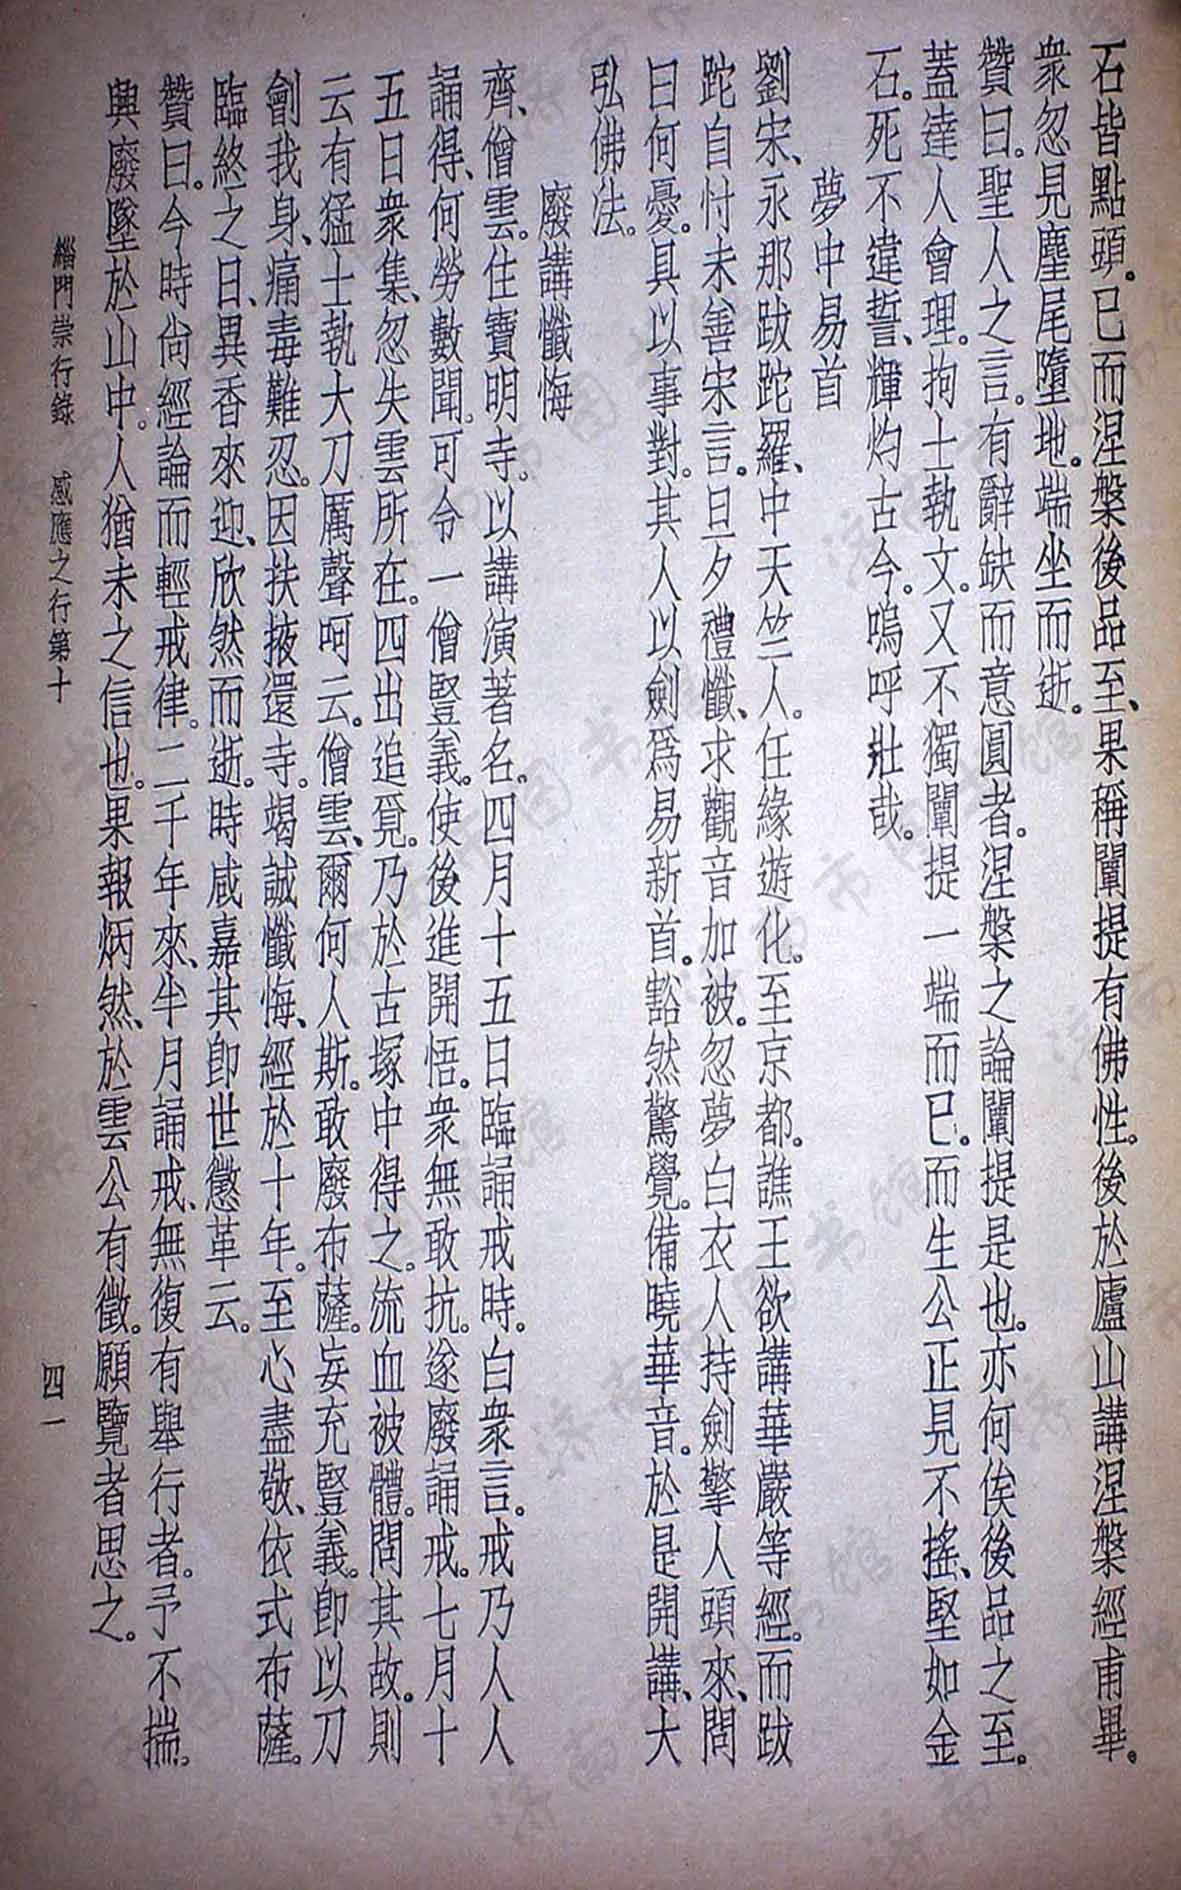 石皆點頭。已而涅槃後品至、果稱闡提有佛性。後於廬山講涅槃經甫畢。
衆忽見麈尾墮地。端坐而逝。
贊曰。聖人之言。有辭缺而意圓者。涅槃之論闡提是也。亦何俟後品之至。
蓋達人會理。拘士執文。又不獨闡提一端而已。而生公正見不搖、堅如金
石。死不違誓、輝灼古今。嗚呼壯哉。
夢中易首
劉宋、永那跋跎羅、中天竺人。任緣遊化。至京都。譙王欲講華嚴等經。而跋
跎自忖未善宋言。旦夕禮懺、求觀音加被。忽夢白衣人持劍擎人頭來、問
曰何憂。具以事對。其人以劍爲易新首。豁然驚覺。備曉華音。於是開講、大
弘佛法。
廢講懺悔
齊、僧雲。住寶明寺。以講演著名。四月十五日臨誦戒時。白衆言。戒乃人人
誦得、何勞數聞。可令一僧豎義。使後進開悟。衆無敢抗。遂廢誦戒。七月十
五日衆集、忽失雲所在。四出追覓。乃於古塚中得之。流血被體。問其故。則
云有猛士執大刀厲聲呵云。僧雲、爾何人斯。敢廢布薩。妄充豎義。卽以刀
劊我身、痛毒難忍。因扶掖還寺。竭誠懺悔、經於十年。至心盡敬、依式布薩。
臨終之日、異香來迎、欣然而逝。時咸嘉其卽世懲革云。
贊曰。今時尙經論而輕戒律。二千年來、半月誦戒、無復有舉行者。予不揣。
興廢墜於山中。人猶未之信也。果報炳然、於雲公有徵。願覽者思之。
緇門崇行錄 感應之行第十
四一